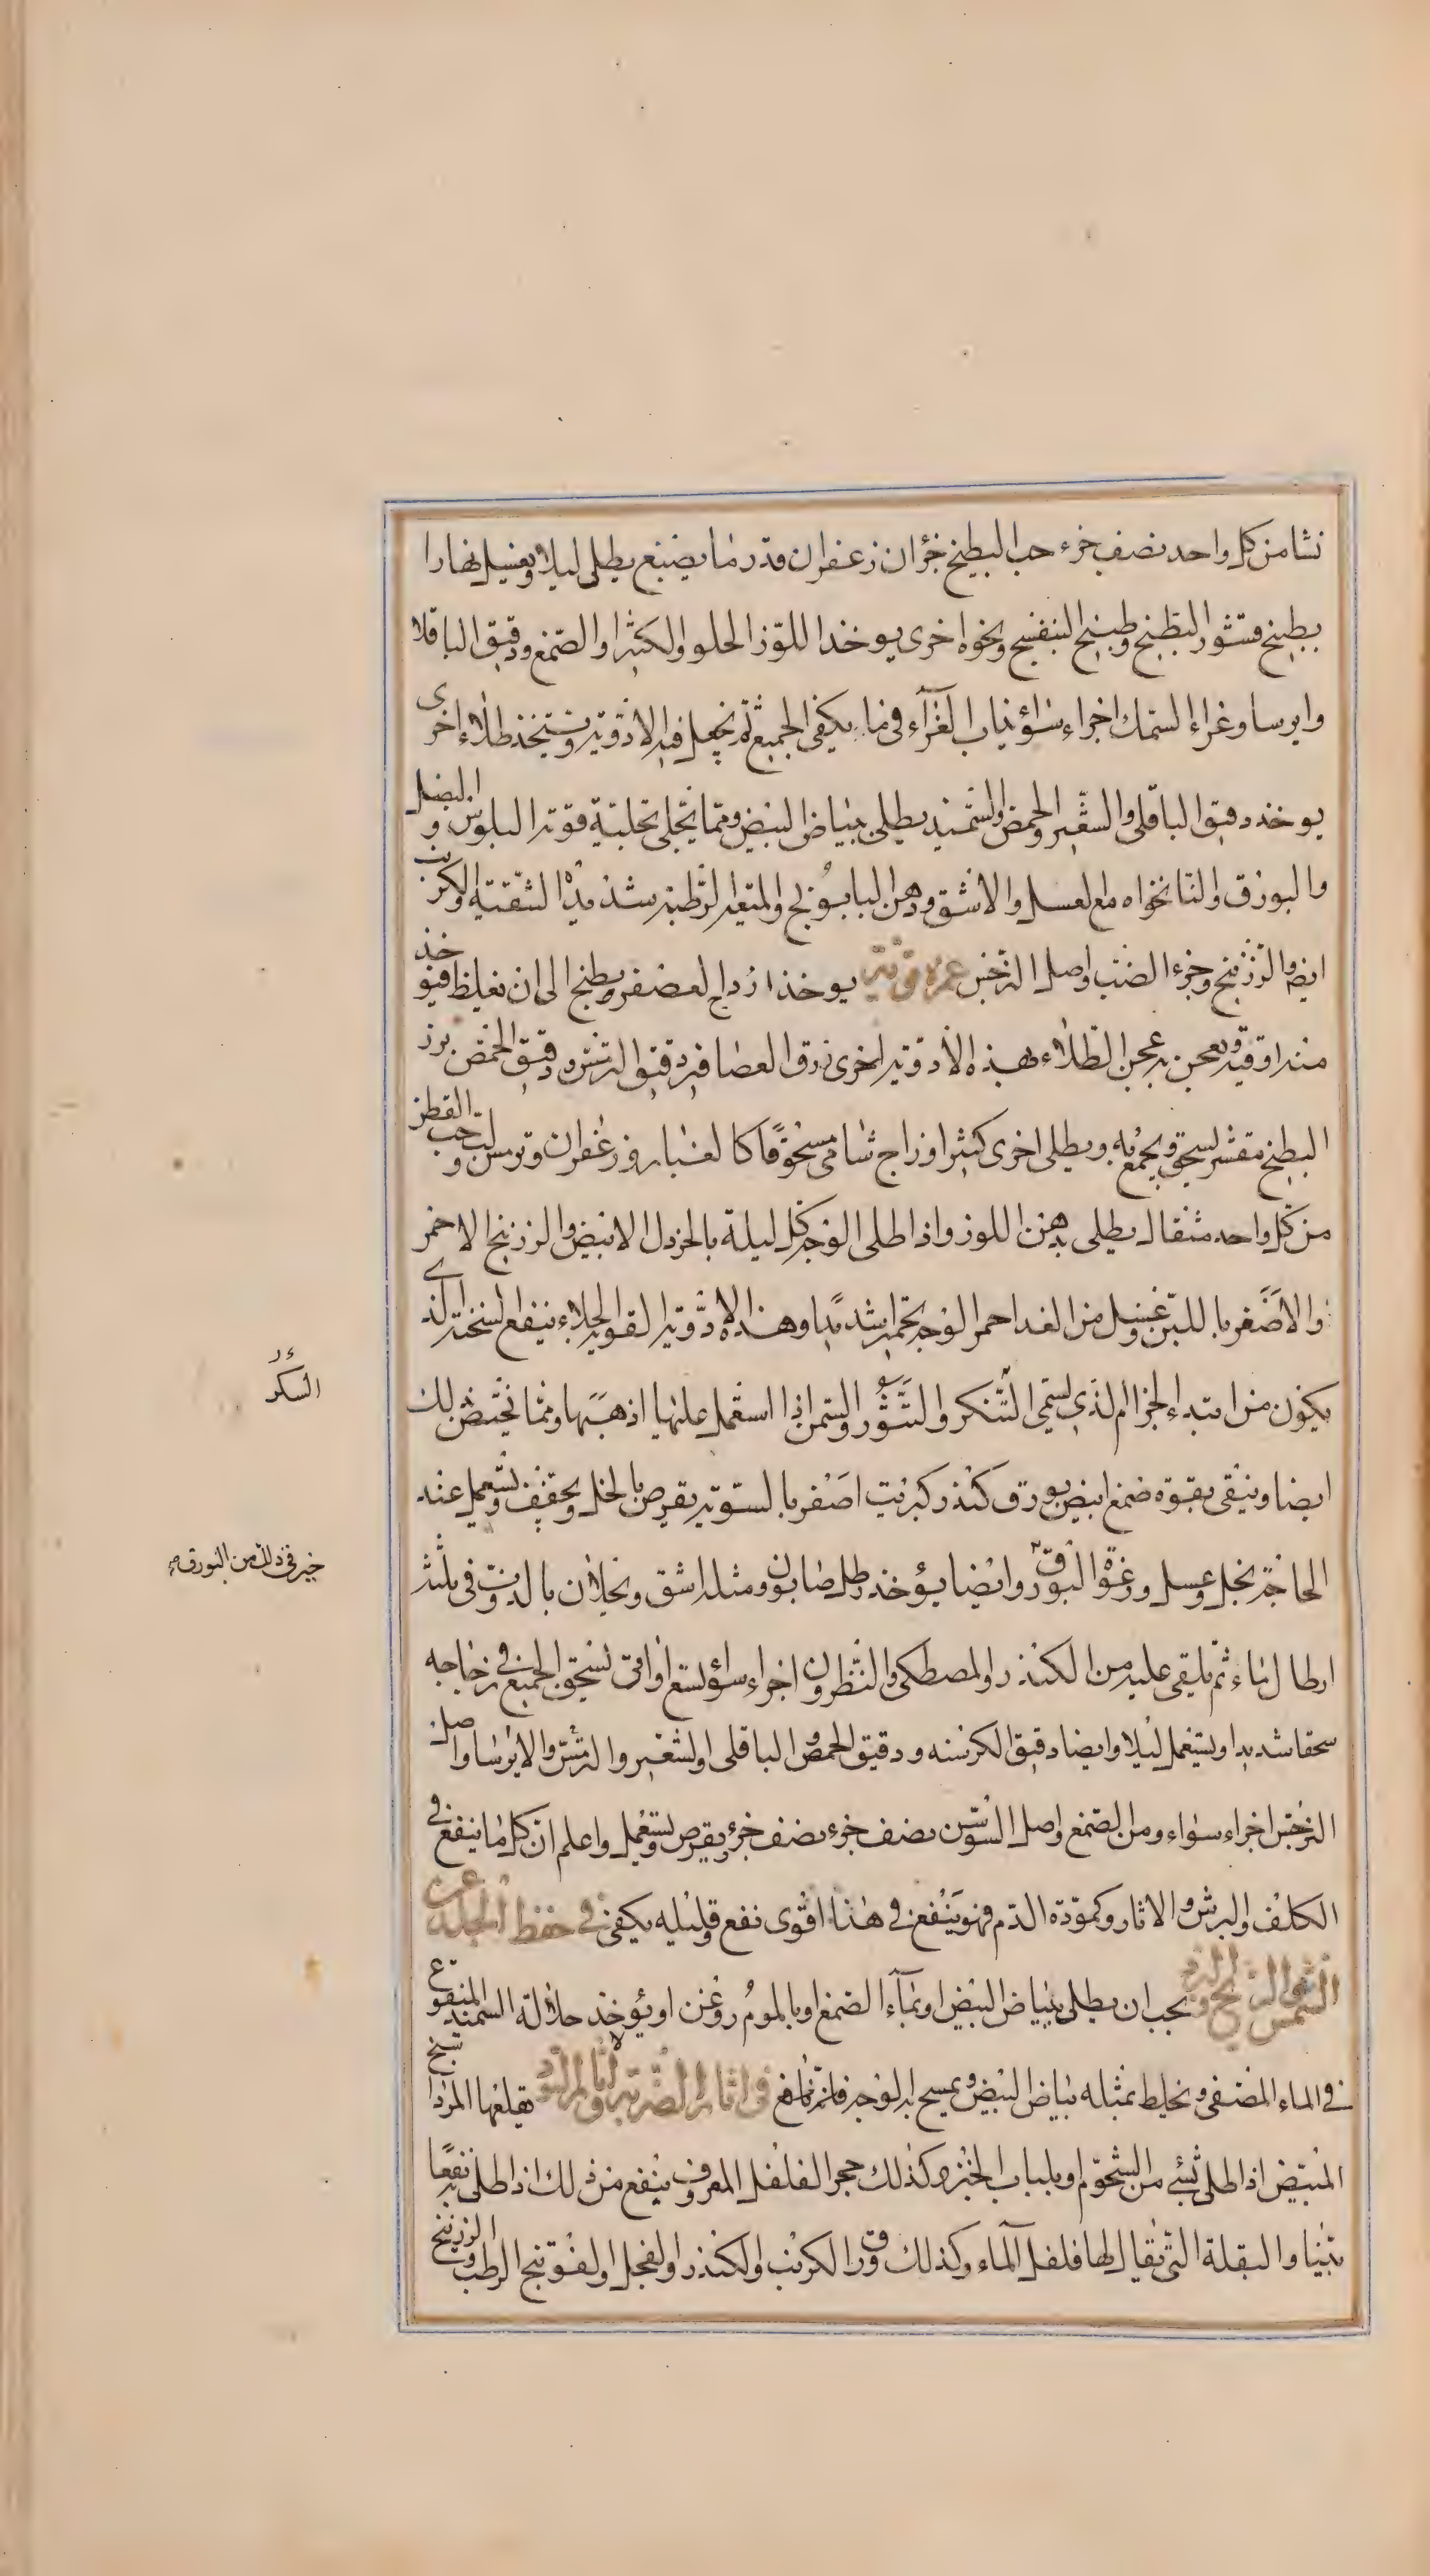 نشا من كل واحد نصف جزء حب البطيخ جزان زعفران قدر ما يصبغ يطلى ليلا ويغسل نهارا
بطبيخ قشور البطيخ وطبيخ البنفسج ونحوه اخرى يوخذ اللوز الحلو والكثيرا والصمغ ودقيق الباقلا
وايرسا وغراء السمك اجزاء سواء يذاب الغراء في ما يكفى الجميع ثم تجعل فيه الادوية ويتخذ طلاء اخرى
يوخذ دقيق الباقلى والشعير والحمص والسميد يطلى ببياض البيض ومما يجلى تجلية قوية البلبوس والبصل
والبورق والنانخواه مع العسل والاشق ودهن البابونج والميعة الرطبة شديدا التنقية والكرنب
ايضا والزرنيخ وخرء الضب واصل النرجس غمرة قوية يوخذ ازداج العصفر ويطبخ الى ان يغلظ فيوخذ
منه اوقية ويعجن به عجن الطلاء بهذه الادوية اخرى زرق العصافير دقيق الترمس ودقيق الحمص بزر
البطيخ مقشر يسحق ويجمع به ويطلى اخرى كثيرا وزاج شامى مسحوقا كالغبار وزعفران وترمس وحب القطن
من كل واحد مثقال يطلى بدهن اللوز واذا طلى الوجه كل ليلة بالخردل الابيض والزرنيخ الاحمر
والاصفر باللبن وغسل من الغد احمر الوجه تحميرا شديدا وهذه الادوية القوية الجلاء ينفع لسخنة الذى
يكون من ابتداء الجذام الذى يسمى التنكر والتثور والسمن اذا استعمل عليها اذهبها ومما يختص بذلك
ايضا وينقى بقوة صمغ ابيض بورق كندر كبريت اصفر بالسوية يقرص بالخل ويجفف ويستعمل عند
الحاجة بخل وعسل ورغوة البورق وايضا يؤخذ رطل صابون ومثله اشق ويحلان بالذوب في ثلثة
ارطال ماء ثم يلقى عليه من الكندر والمصطكى والنطرون اجزاء سواء تسع اواقى يسحق الجميع في زجاجه
سحقا شديدا ويستعمل ليلا وايضا دقيق الكرسنه ودقيق الحمص والباقلى والشعير والترمس والايرسا واصل
النرجس اجزاء سواء ومن الصمغ واصل السوسن نصف جزء نصف جزء يقرص ويستعمل واعلم ان كل ما ينفع في
الكلف والبرش والاثار وكمودة الدم فهو ينفع في هذا اقوى نفع وقليله يكفى في حفظ الجلد عن
الشمس والريح والبرد يجب ان يطلى ببياض البيض او بماء الصمغ او بالموم روغن او يؤخذ حلالة السميد المنقوع
في الماء المصفى ويخلط بمثله بياض البيض ويمسح به الوجه فانه نافع في اثار الضربة والاثار السود يقلعها المرداسنج
المبيض اذا طلى بشئ من الشحوم او بلباب الخبز وكذلك حجر الفلفل المعروف ينفع من ذلك اذا طلى به نفعا
بينا والبقلة التى يقال لها فلفل الماء وكذلك ورق الكرنب والكندر والفجل والفوتنج الرطب والزرنيخ
السكر
خير في ذلك من البورق